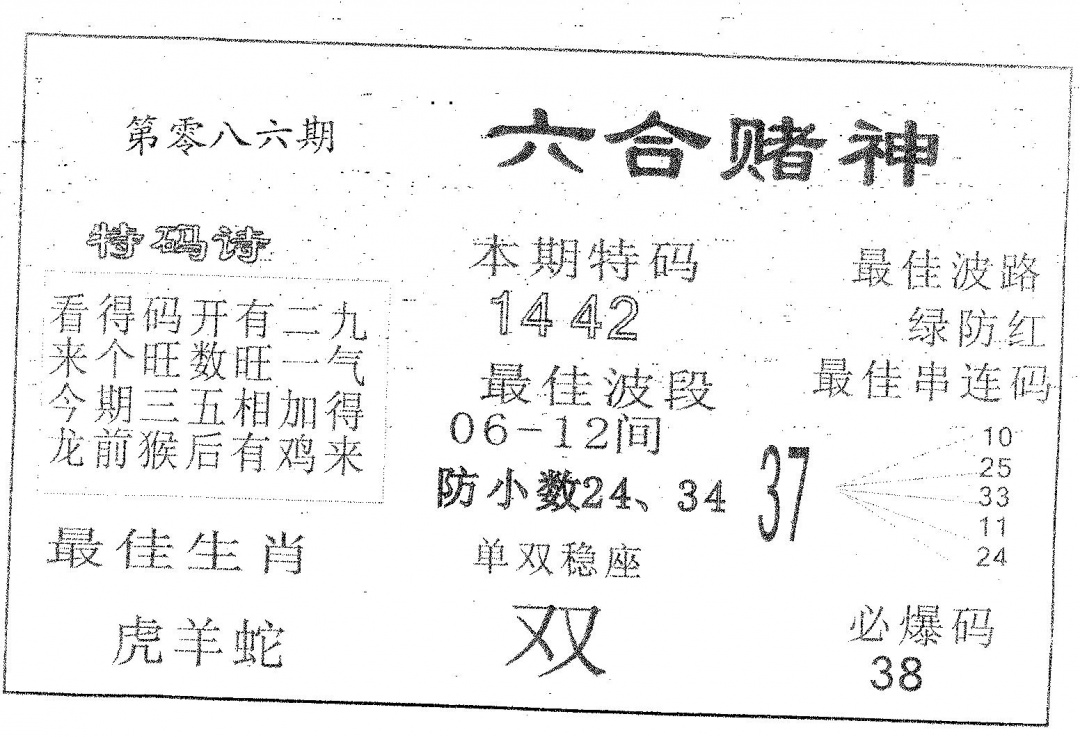 第零八六期
六合赌神
特码诗
看得码开有二九
来个旺数旺一气
今期三五相加得
龙前猴后有鸡来
最佳生肖
虎羊蛇
本期特码
14 42
最佳波段
06-12间
防小数24、34
单双稳座
双
最佳波路
绿防红
最佳串连码
37
10
25
33
11
24
必爆码
38